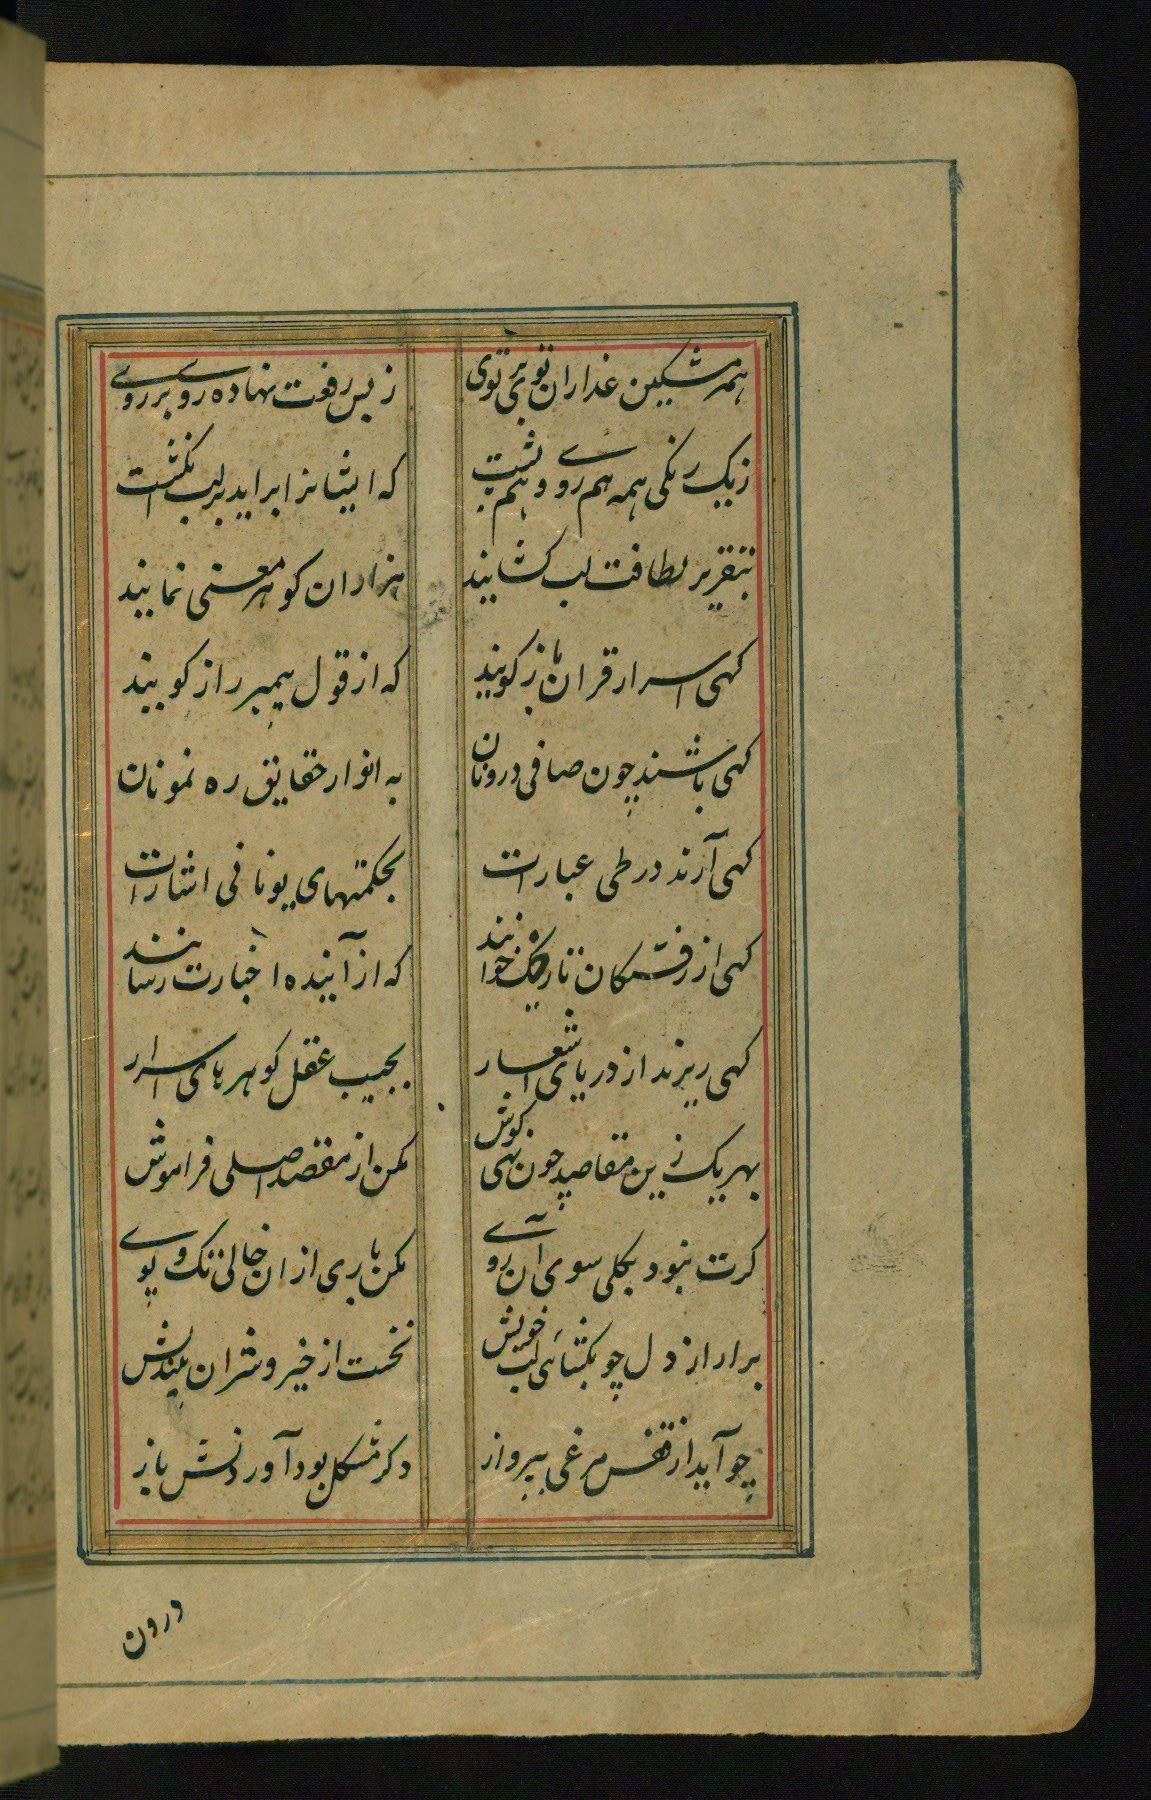 همه مشکین عذاران توی بر توی ز بس رقت نهاده روی بر روی
ز یک رنکی همه هم روی و هم پشت که ایشانرا براید بر لب انکشت
بتقریر لطافت لب کشایند هزاران کوهر معنی نمایند
کهی اسرار قران باز کویند که از قول پیمبر راز کویند
کهی باشند چون صافی درونان به انوار حقایق ره نمونان
کهی آرند در طی عبارات بحکمتهای یونانی اشارات
کهی از رفتکان تاریخ خوانند که از آینده اخبارت رسانند
کهی ریزند از دریای اشعار بجیب عقل کوهرهای اسرار
بهر یک زین مقاصد چون نهی کوش مکن از مقصد اصلی فراموش
کرت نبود بکلی سوی آن روی مکن باری ازان خالی تک و پوی
برار از دل چو بکشائی لب خویش نخست از خیر و شر ان بیندیش
چو آید از قفس مرغی بپرواز دکر مشکل بود آوردنش باز
درون